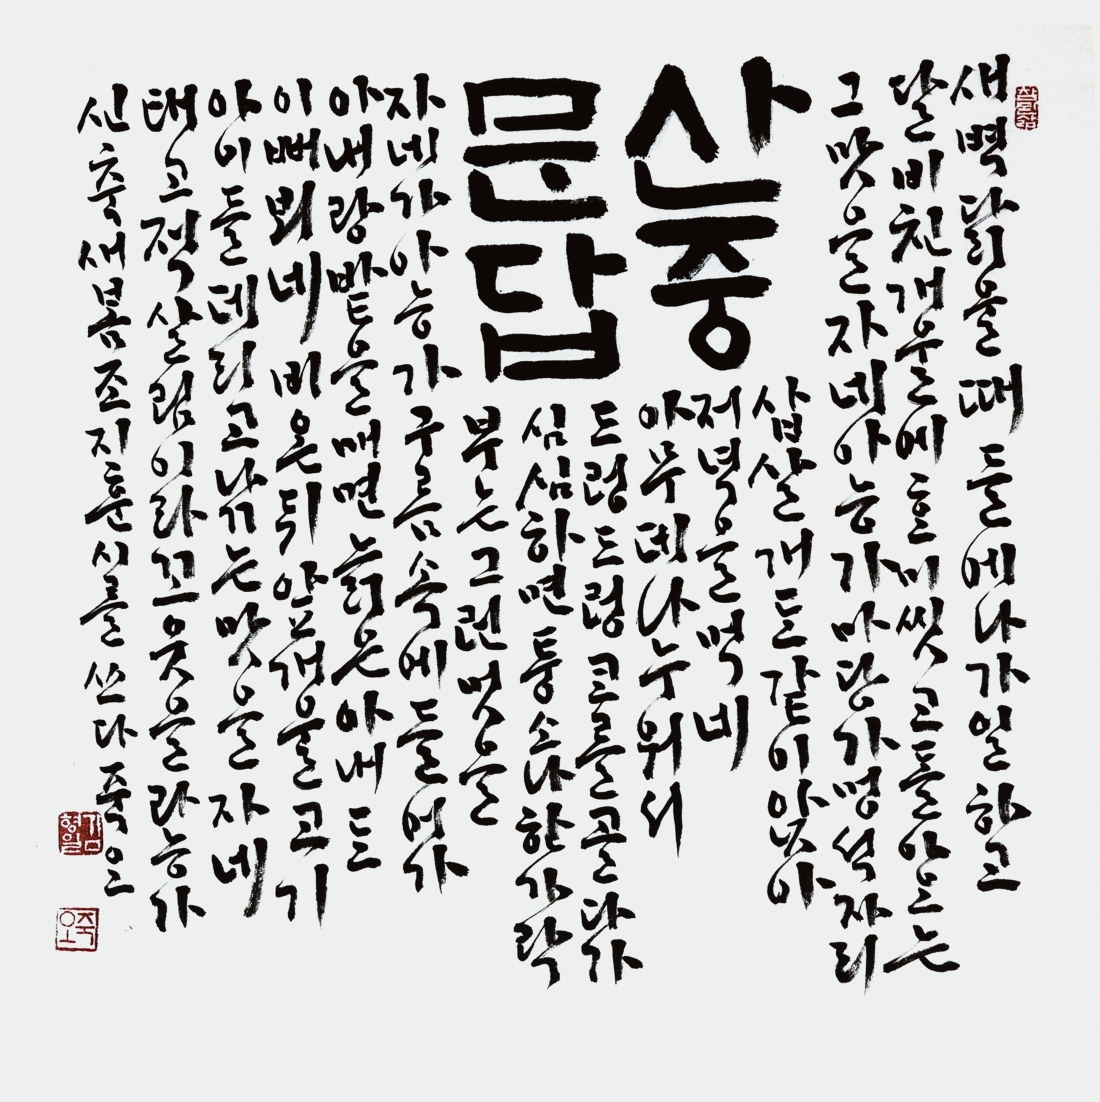 새벽닭울때들에나가일하고
달비친개울에호미씻고돌아오는
그맛을자네아능가마당가멍석자리
산중
문답
삽살개도같이앉아
저녁을먹네
아무데나누워서
드렁드렁코를골다가
심심하면퉁소나한가락
부는그런멋을
자네가아능가구름속에들어가
아내랑밭을매면늙은아내도
이뻐뵈네비온뒤앞개울고기
아이들데리고낚는맛을자네
태고적살림이라꼬웃을라능가
신축새봄조지훈시를쓰다죽오
김형일
죽오